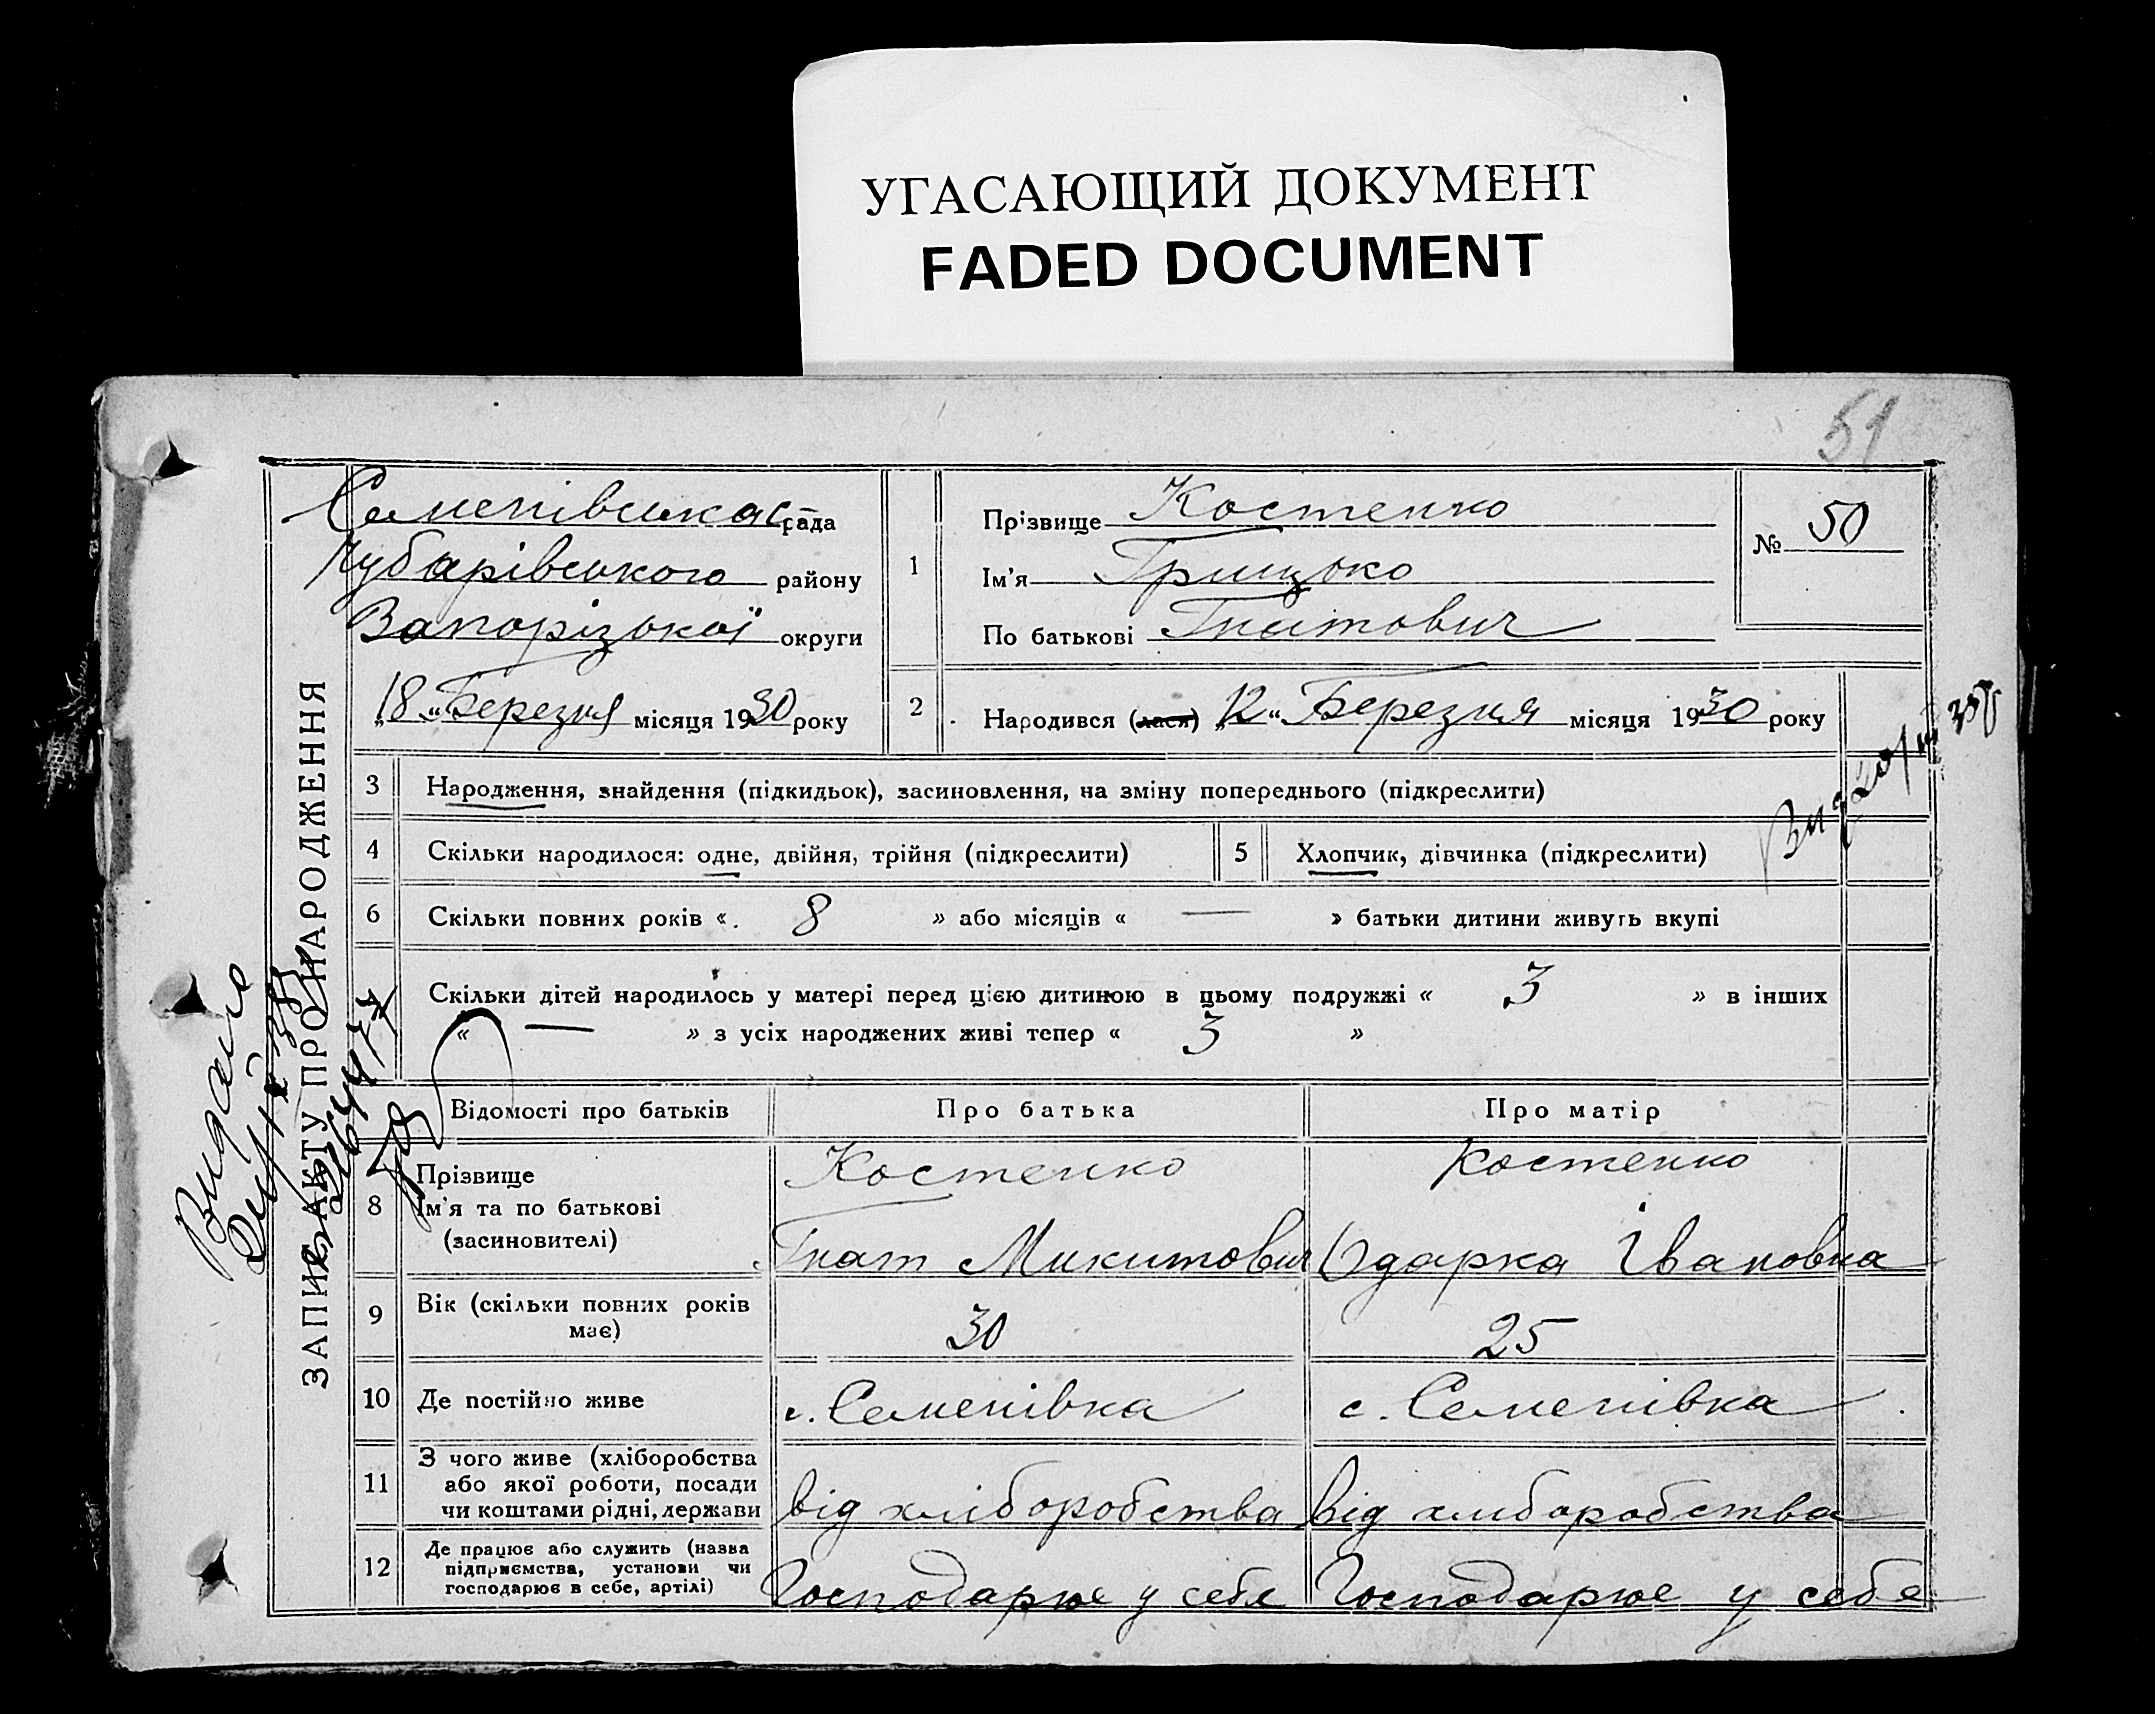 УГАСАЮЩИЙ ДОКУМЕНТ
FADED DOCUMENT
51
ЗАПИС АКТУ ПРО НАРОДЖЕННЯ
Семенівська с рада
Чубарівського району
Запорізької округи
„18“ Березня місяця 1930 року
1
Прізвище Костенко
Ім'я Грицько
По батькові Гнатович
№ 50
2
Народився (лася) „12“ Березня місяця 1930 року
3 Народження, знайдення (підкидьок), засиновлення, на зміну попереднього (підкреслити)
4 Скільки народилося: одне, двійня, трійня (підкреслити)
5 Хлопчик, дівчинка (підкреслити)
6 Скільки повних років « 8 » або місяців « — » батьки дитини живуть вкупі
Скільки дітей народилось у матері перед цією дитиною в цьому подружжі « 3 » в інших
« — » з усіх народжених живі тепер « 3 »
Відомості про батьків Про батька Про матір
8
Прізвище
Ім'я та по батькові
(засиновителі)
Костенко
Гнат Микитович
Костенко
Одарка Івановна
9 Вік (скільки повних років
має)
30 25
10 Де постійно живе с. Семенівка с. Семенівка
11
З чого живе (хліборобства
або якої роботи, посади
чи коштами рідні, держави
від хліборобства від хліборобства
12
Де працює або служить (назва
підприємства, установи чи
господарює в себе, артілі)
Господарює у себе Господарює у себе
Видано